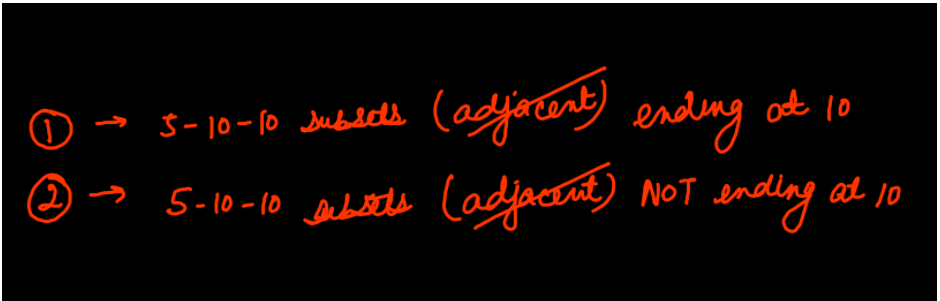 ① → 5-10-10 subsets (adjacent) ending at 10
② → 5-10-10 subsets (adjacent) NOT ending at 10